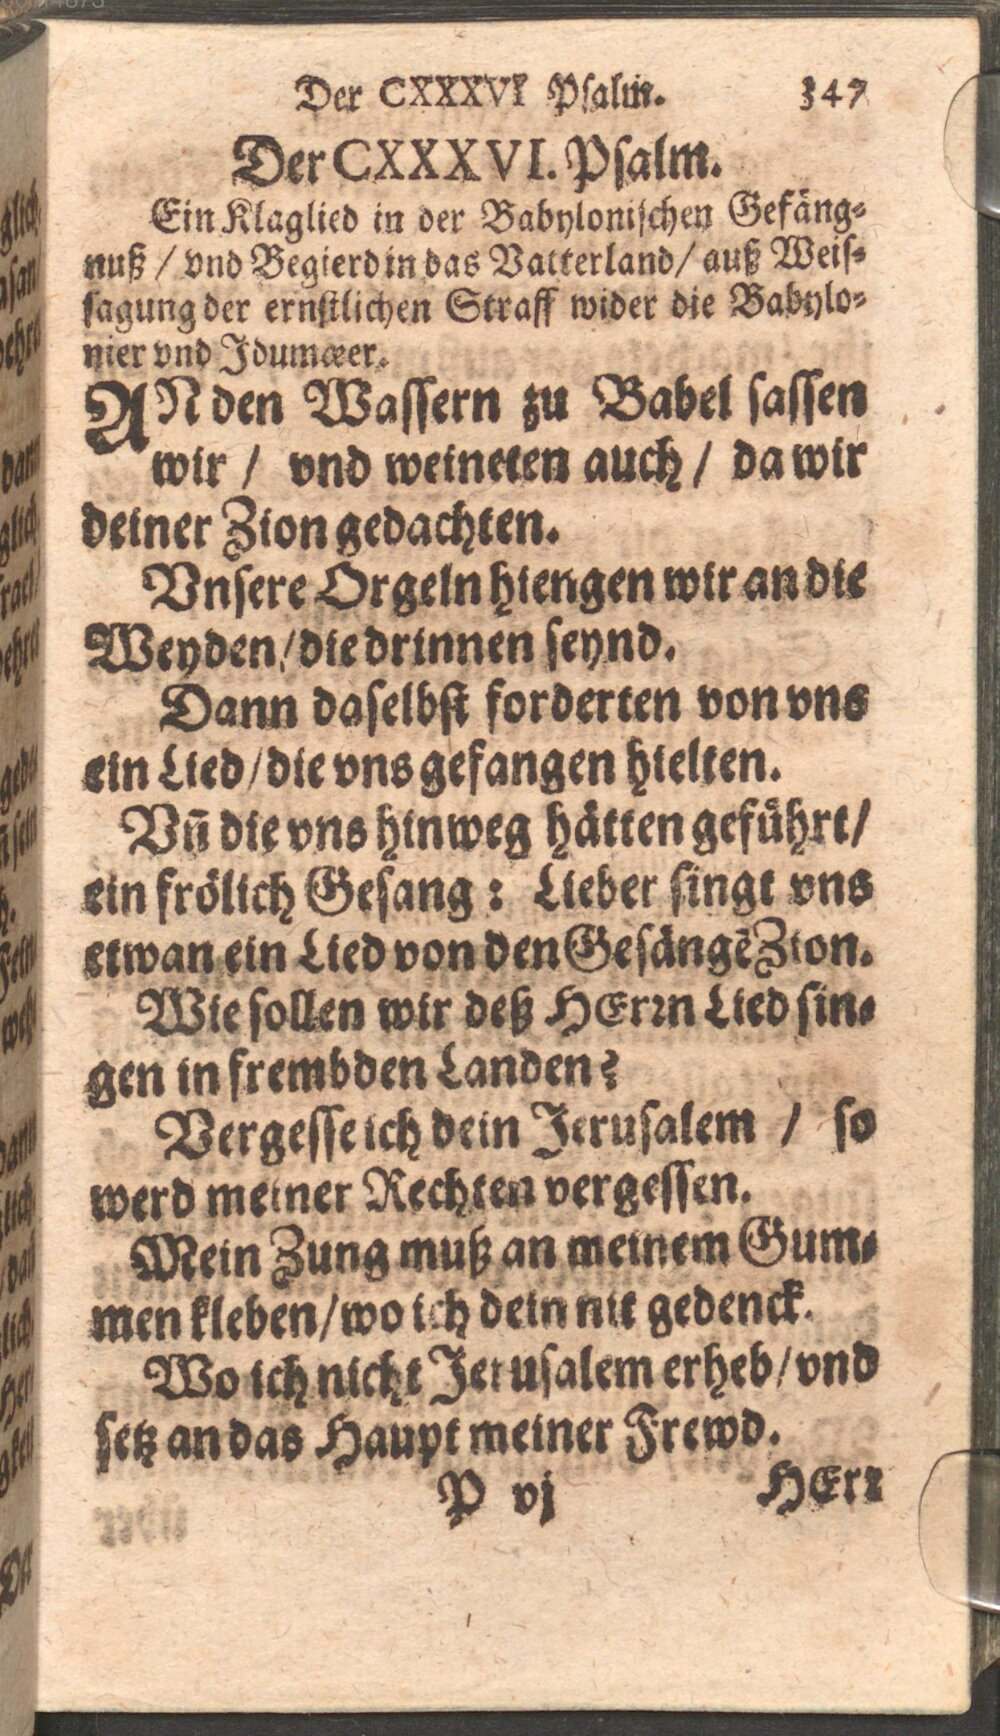 Der CXXXVI Psalm. 347
Der CXXXVI. Psalm.
Ein Klaglied in der Babylonischen Gefäng-
nuß / vnd Begierd in das Vatterland / auß Weis-
sagung der ernstlichen Straff wider die Babylo-
nier vnd Idumæer.
AN den Wassern zu Babel sassen
wir / vnd weineten auch / da wir
deiner Zion gedachten.
Vnsere Orgeln hiengen wir an die
Weyden / die drinnen seynd.
Dann daselbst forderten von vns
ein Lied / die vns gefangen hielten.
Vñ die vns hinweg hätten geführt /
ein frölich Gesang : Lieber singt vns
etwan ein Lied von den Gesängẽ Zion.
Wie sollen wir deß HErꝛn Lied sin-
gen in frembden Landen?
Vergesse ich dein Jerusalem / so
werd meiner Rechten vergessen.
Mein Zung muß an meinem Gum-
men kleben / wo ich dein nit gedenck.
Wo ich nicht Jerusalem erheb / vnd
setz an das Haupt meiner Frewd.
P vj HErꝛ